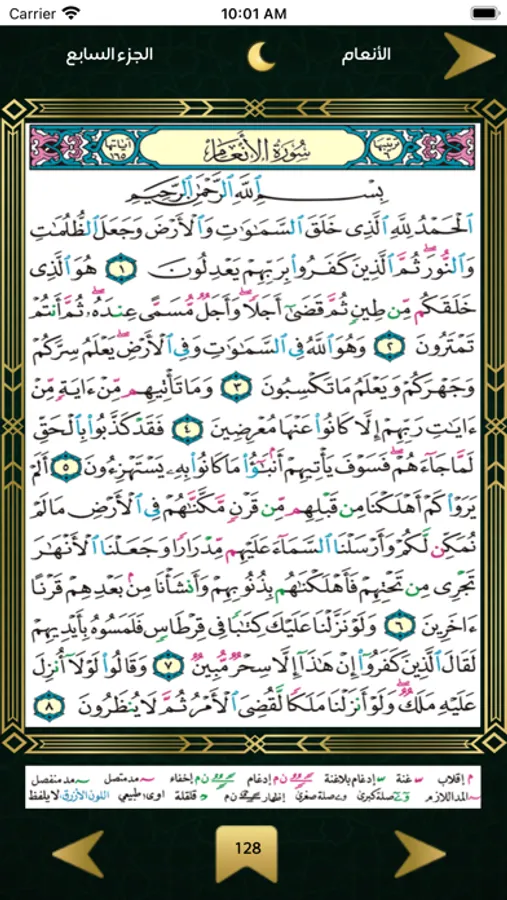 Carrier 10:01 AM
الأنعام
الجزء السابع
ترتيبها ٦ سُورَةُ الأَنْعَام آياتها ١٦٥
بِسْمِ اللَّهِ الرَّحْمَٰنِ الرَّحِيمِ
الْحَمْدُ لِلَّهِ الَّذِي خَلَقَ السَّمَٰوَٰتِ وَالْأَرْضَ وَجَعَلَ الظُّلُمَٰتِ
وَالنُّورَ ۖ ثُمَّ الَّذِينَ كَفَرُوا بِرَبِّهِمْ يَعْدِلُونَ ١ هُوَ الَّذِي
خَلَقَكُم مِّن طِينٍ ثُمَّ قَضَىٰٓ أَجَلًا ۖ وَأَجَلٌ مُّسَمًّى عِندَهُۥ ۖ ثُمَّ أَنتُمْ
تَمْتَرُونَ ٢ وَهُوَ اللَّهُ فِي السَّمَٰوَٰتِ وَفِي الْأَرْضِ ۖ يَعْلَمُ سِرَّكُمْ
وَجَهْرَكُمْ وَيَعْلَمُ مَا تَكْسِبُونَ ٣ وَمَا تَأْتِيهِم مِّنْ ءَايَةٍ مِّنْ
ءَايَٰتِ رَبِّهِمْ إِلَّا كَانُوا عَنْهَا مُعْرِضِينَ ٤ فَقَدْ كَذَّبُوا بِالْحَقِّ
لَمَّا جَآءَهُمْ ۖ فَسَوْفَ يَأْتِيهِمْ أَنۢبَٰٓؤُا مَا كَانُوا بِهِۦ يَسْتَهْزِءُونَ ٥ أَلَمْ
يَرَوْا كَمْ أَهْلَكْنَا مِن قَبْلِهِم مِّن قَرْنٍ مَّكَّنَّٰهُمْ فِي الْأَرْضِ مَا لَمْ
نُمَكِّن لَّكُمْ وَأَرْسَلْنَا السَّمَآءَ عَلَيْهِم مِّدْرَارًا وَجَعَلْنَا الْأَنْهَٰرَ
تَجْرِي مِن تَحْتِهِمْ فَأَهْلَكْنَٰهُم بِذُنُوبِهِمْ وَأَنشَأْنَا مِنۢ بَعْدِهِمْ قَرْنًا
ءَاخَرِينَ ٦ وَلَوْ نَزَّلْنَا عَلَيْكَ كِتَٰبًا فِي قِرْطَاسٍ فَلَمَسُوهُ بِأَيْدِيهِمْ
لَقَالَ الَّذِينَ كَفَرُوا إِنْ هَٰذَآ إِلَّا سِحْرٌ مُّبِينٌ ٧ وَقَالُوا لَوْلَآ أُنزِلَ
عَلَيْهِ مَلَكٌ ۖ وَلَوْ أَنزَلْنَا مَلَكًا لَّقُضِيَ الْأَمْرُ ثُمَّ لَا يُنظَرُونَ ٨
إقلاب غنة إدغام بلاغنة ن م إدغام ن م إخفاء مد متصل مد منفصل
المد اللازم صلة كبرى صلة صغرى إظهار ن م قلقلة اوي: طبيعي اللون الأزرق: لا يلفظ
128